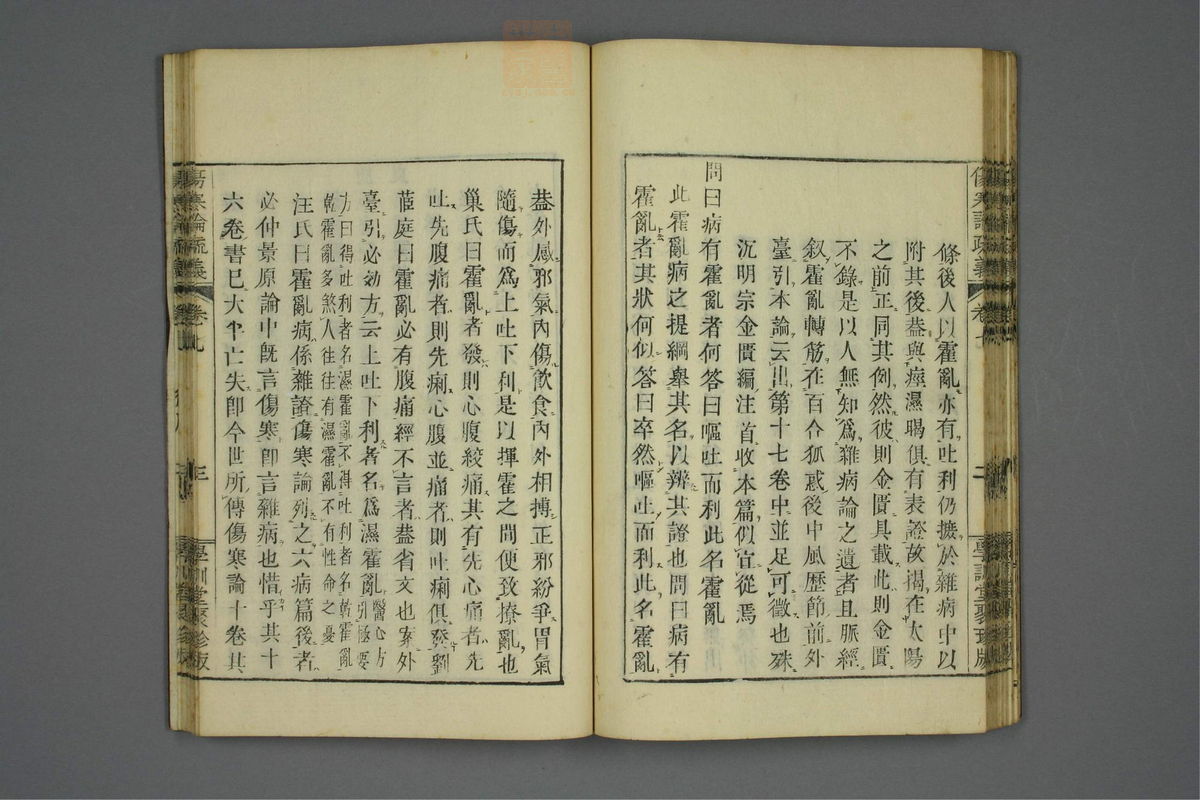 條後人以霍亂亦有吐利仍擴於雜病中以
附其後葢與痙濕暍俱有表證故揭在太陽
之前正同其例然彼則金匱具載此則金匱
不錄是以人無知爲雜病論之遺者且脈經
叙霍亂轉筋在百合狐惑後中風歷節前外
臺引本論云出第十七卷中並足可徵也殊
沉明宗金匱編注首收本篇似宜從焉
問曰病有霍亂者何答曰嘔吐而利此名霍亂
此霍亂病之提綱舉其名以辨其證也問曰病有
霍亂者其狀何似答曰卒然嘔吐而利此名霍亂
葢外感邪氣內傷飲食內外相搏正邪紛爭胃氣
隨傷而爲上吐下利是以揮霍之間便致撩亂也
巢氏曰霍亂者發則心腹絞痛其有先心痛者先
吐先腹痛者則先痢心腹並痛者則吐痢俱發劉
蒞庭曰霍亂必有腹痛經不言者葢省文也案外
臺引必効方云上吐下利者名爲濕霍亂醫心方引極要
方曰得吐利者名濕霍亂不得吐利者名乾霍亂
乾霍亂多煞人往往有濕霍亂不有性命之憂
汪氏曰霍亂病係雜證傷寒論列之六病篇後者
必仲景原論中旣言傷寒卽言雜病也惜乎其十
六卷書已大半亡失卽今世所傳傷寒論十卷其
傷寒論疏義
卷七
三
學訓堂聚珍版